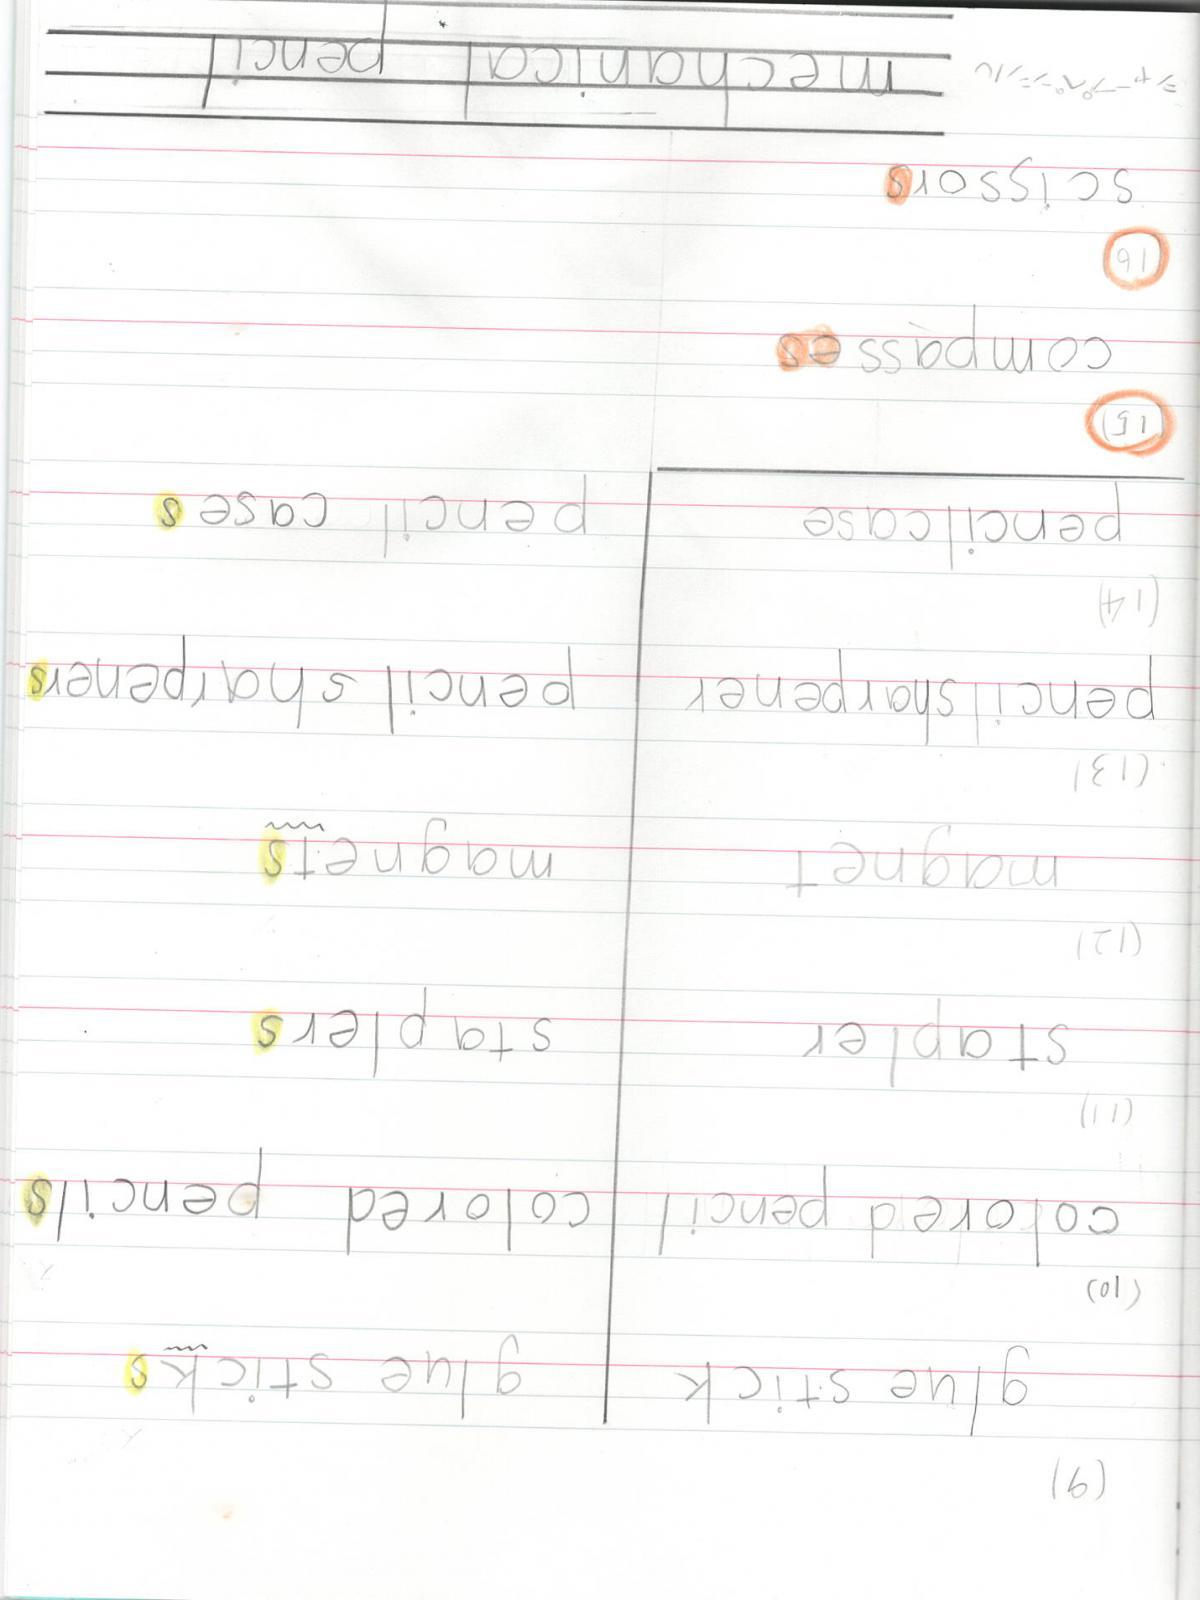 (9)
glue stick glue sticks
(10)
colored pencil colored pencils
(11)
stapler staplers
(12)
magnet magnets
(13)
pencil sharpener pencil sharpeners
(14)
pencil case pencil cases
(15)
compasses
(16)
scissors
シャープペンシル mechanical pencil